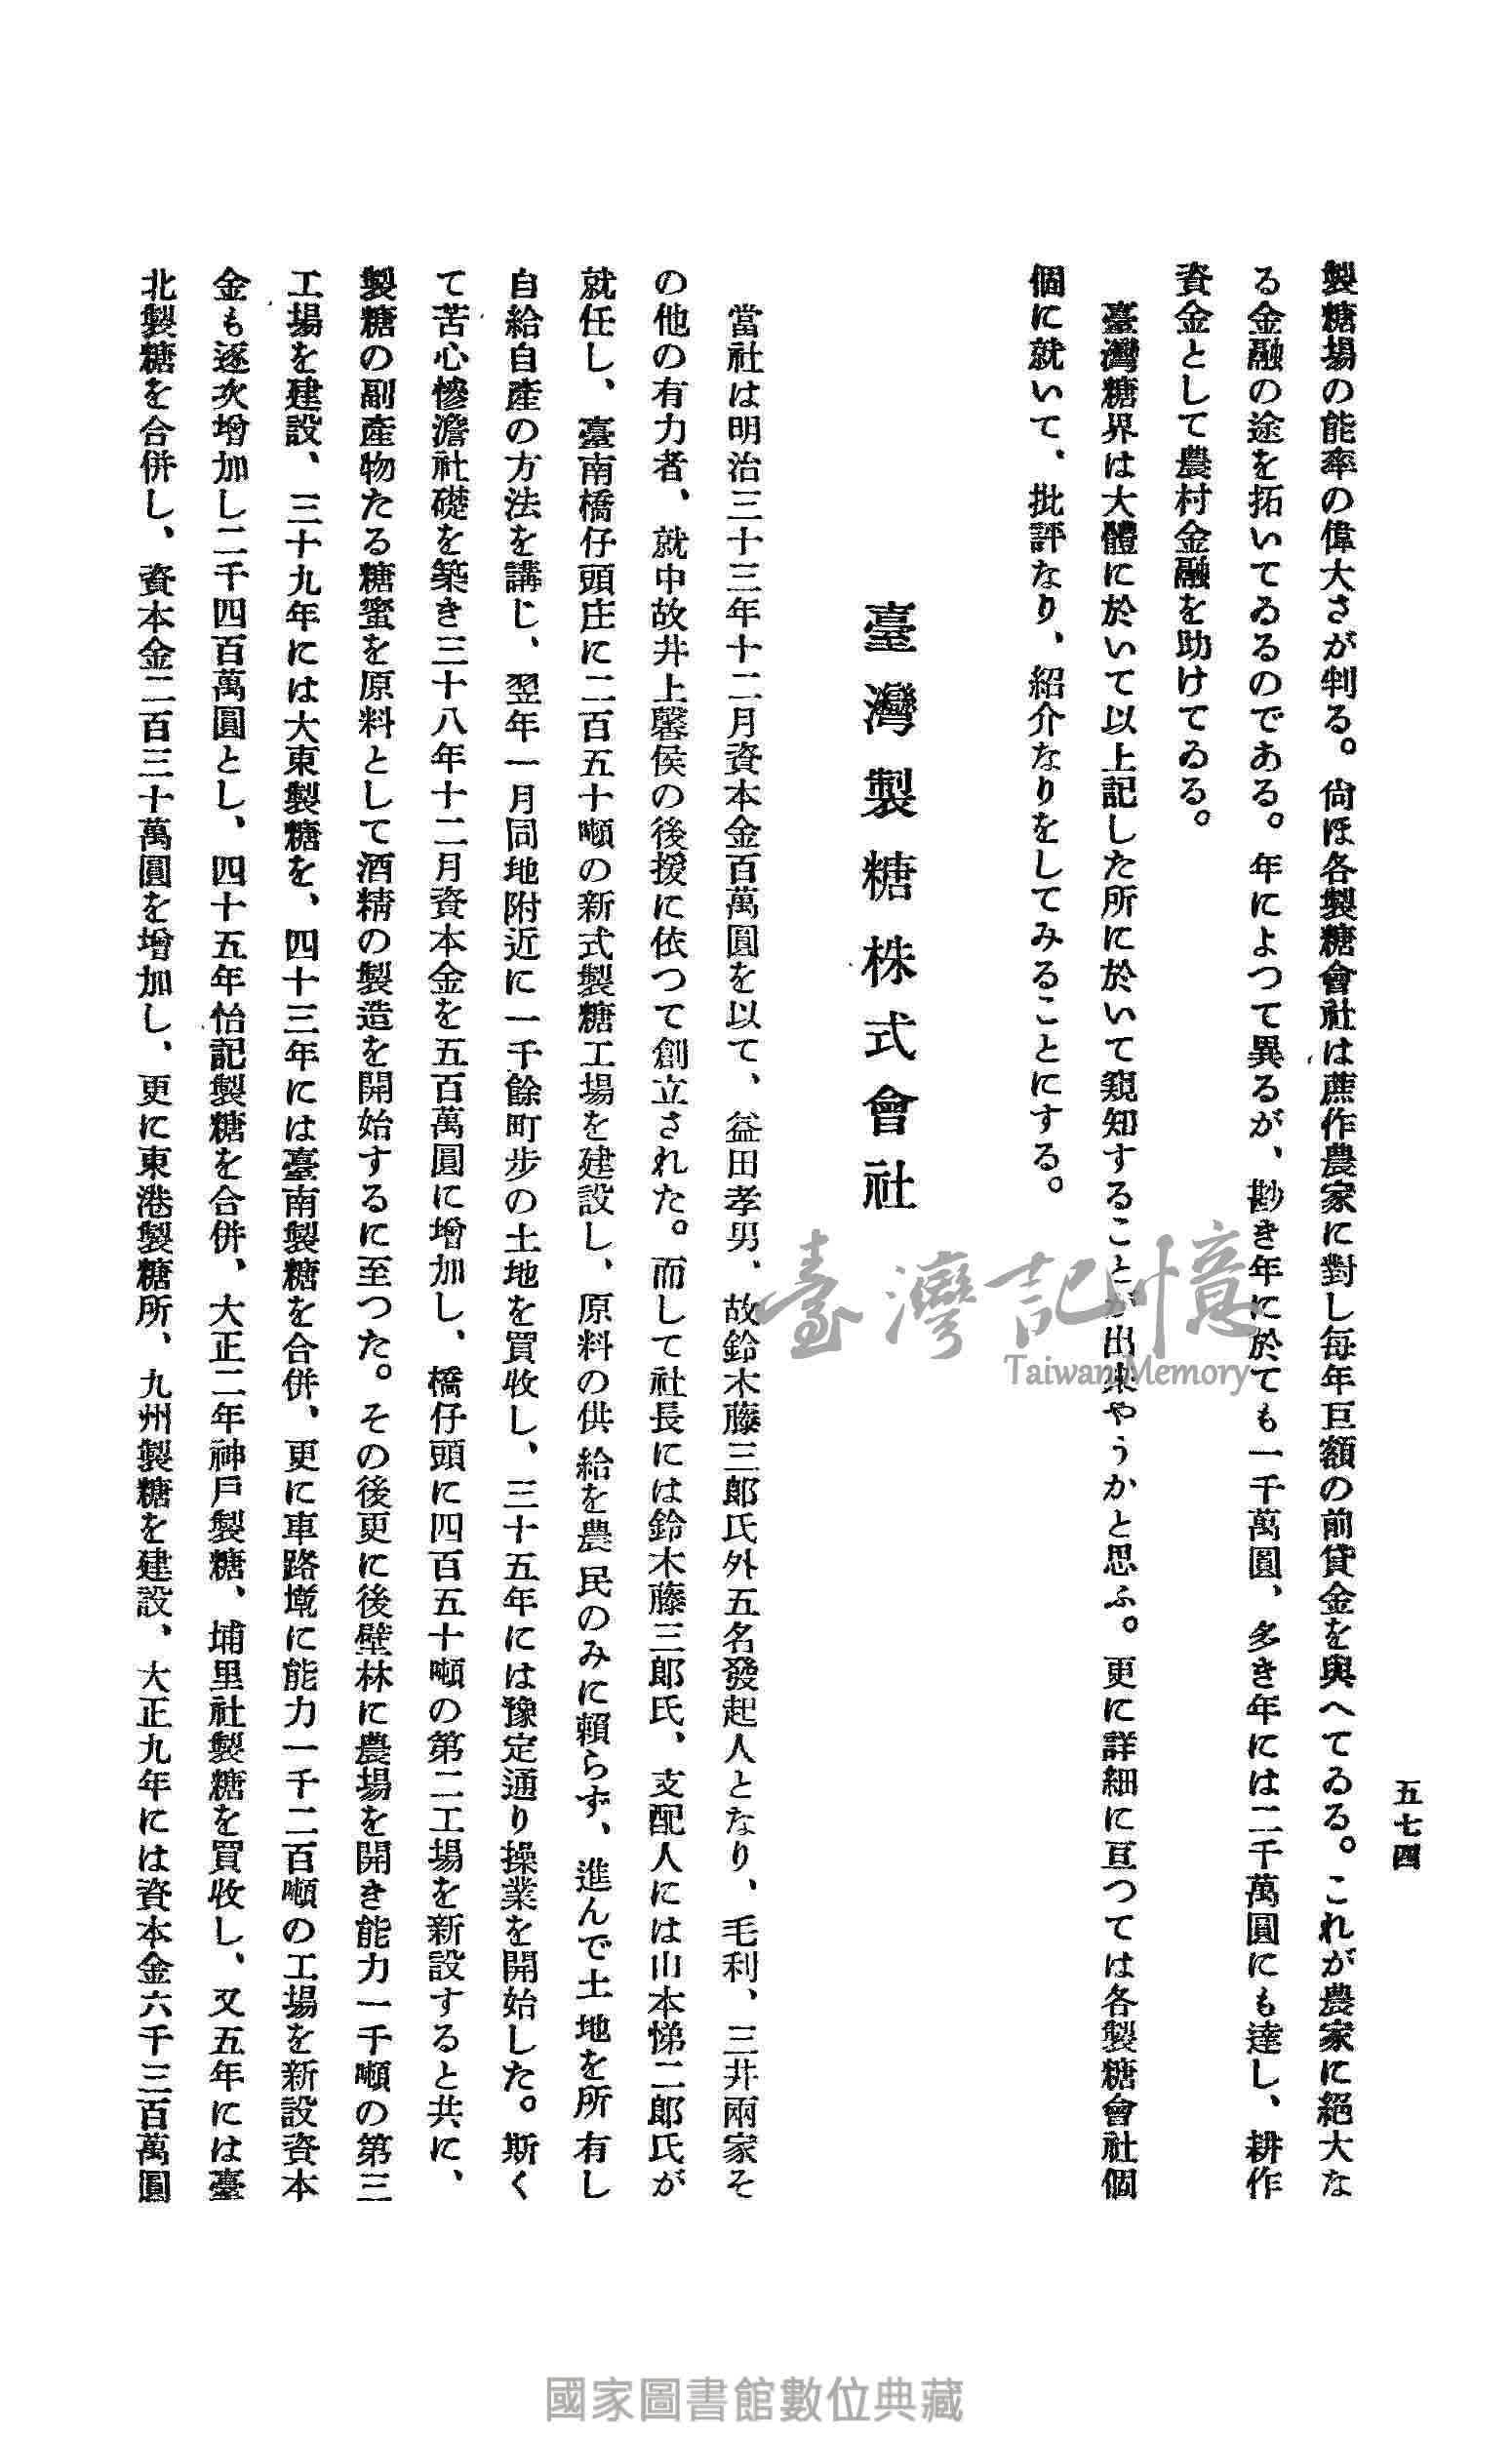 五七四
製糖場の能率の偉大さが判る。尙ほ各製糖會社は蔗作農家に對し每年巨額の前貸金を與へてゐる。これが農家に絕大な
る金融の途を拓いてゐるのである。年によつて異るが、尠き年に於ても一千萬圓、多き年には二千萬圓にも達し、耕作
資金として農村金融を助けてゐる。
臺灣糖界は大體に於いて以上記した所に於いて窺知することが出來やうかと思ふ。更に詳細に亘つては各製糖會社個
個に就いて、批評なり、紹介なりをしてみることにする。
臺灣製糖株式會社
當社は明治三十三年十二月資本金百萬圓を以て、益田孝男、故鈴木藤三郞氏外五名發起人となり、毛利、三井兩家そ
の他の有力者、就中故井上馨侯の後援に依つて創立された。而して社長には鈴木藤三郞氏、支配人には山本悌二郞氏が
就任し、臺南橋仔頭庄に二百五十噸の新式製糖工場を建設し、原料の供給を農民のみに賴らず、進んで土地を所有し
自給自產の方法を講じ、翌年一月同地附近に一千餘町步の土地を買收し、三十五年には豫定通り操業を開始した。斯く
て苦心慘澹社礎を築き三十八年十二月資本金を五百萬圓に增加し、橋仔頭に四百五十噸の第二工場を新設すると共に、
製糖の副產物たる糖蜜を原料として酒精の製造を開始するに至つた。その後更に後壁林に農場を開き能力一千噸の第三
工場を建設、三十九年には大東製糖を、四十三年には臺南製糖を合併、更に車路墘に能力一千二百噸の工場を新設資本
金も逐次增加し二千四百萬圓とし、四十五年怡記製糖を合併、大正二年神戶製糖、埔里社製糖を買收し、又五年には臺
北製糖を合併し、資本金二百三十萬圓を增加し、更に東港製糖所、九州製糖を建設、大正九年には資本金六千三百萬圓
臺灣記憶
Taiwan Memory
國家圖書館數位典藏